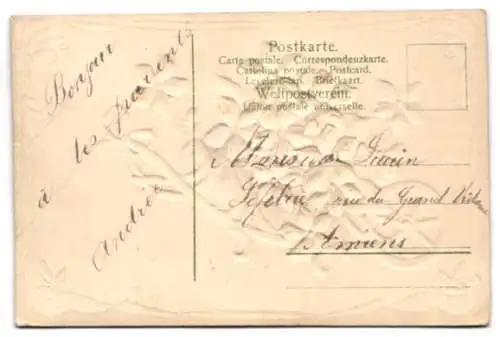 Bonjour
à tes parents
André
Postkarte.
Carte postale. Correspondenzkarte.
Cartolina postale. Postcard.
Levelezö-lap. Briefkaart.
Weltpostverein.
Union postale universelle.
Monsieur
rue du Grand
Amiens